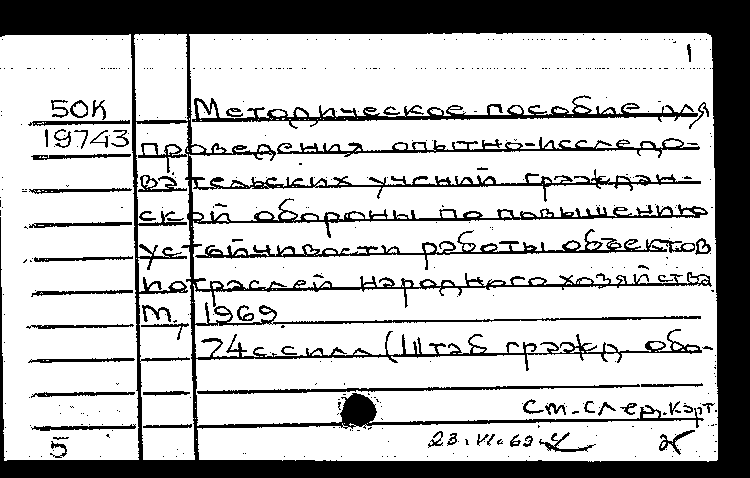 1
50К Методическое пособие для
19743 проведения опытно-исследо-
вательских учений граждан-
ской обороны по повышению
устойчивости работы объектов
и отраслей народного хозяйства
М., 1969.
74 с. с илл (Штаб гражд. обо-
См. след. карт.
5 23.VI.69